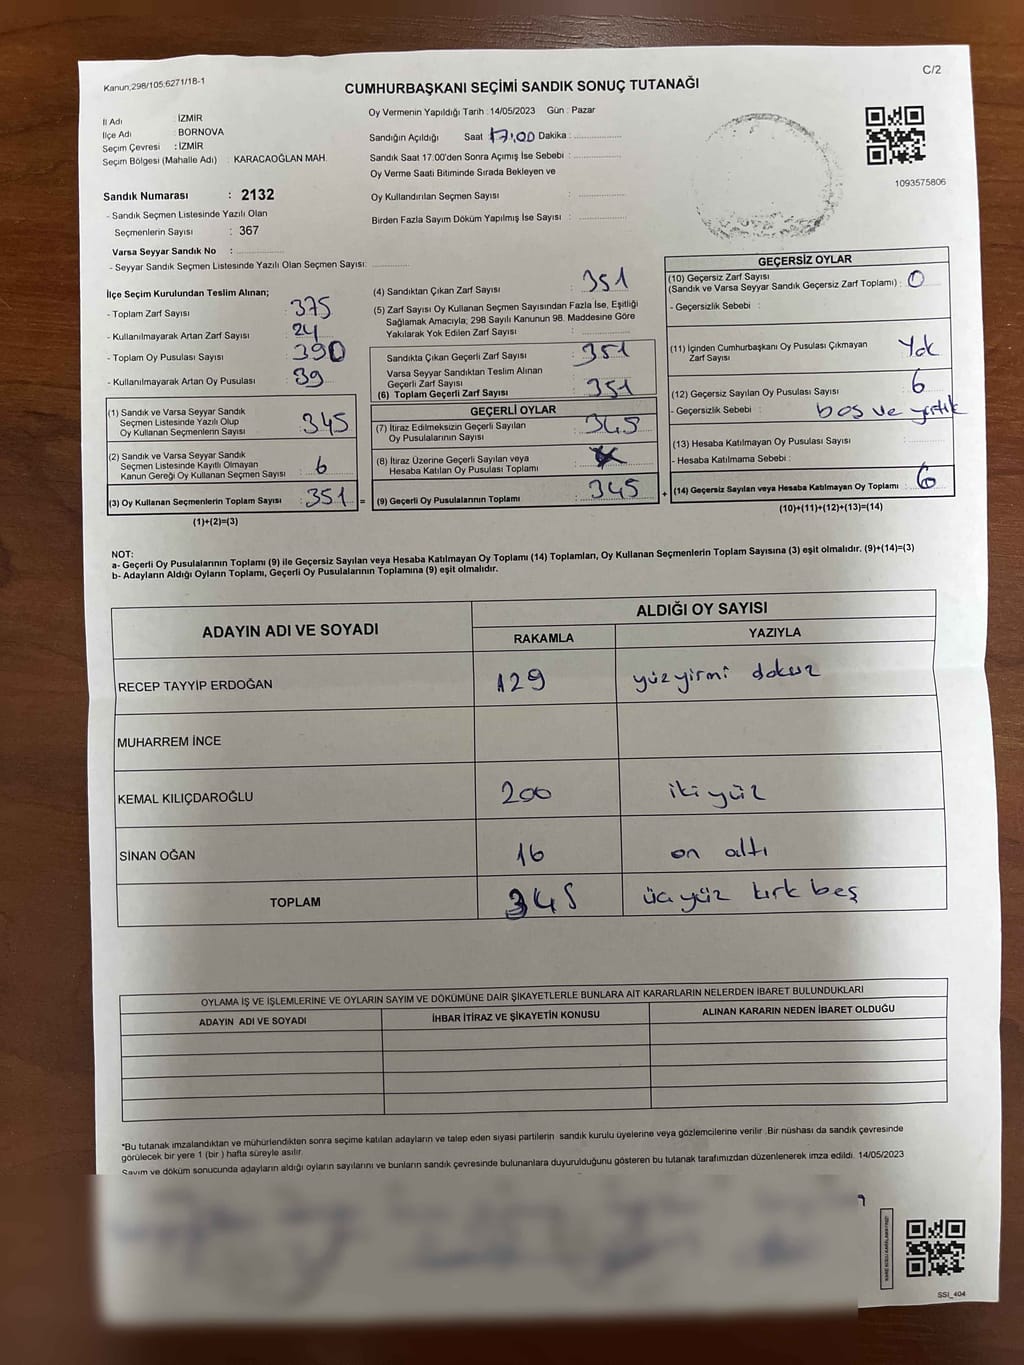 Kanun,298/105;6271/18-1
C/2
CUMHURBAŞKANI SEÇİMİ SANDIK SONUÇ TUTANAĞI
İl Adı : İZMİR
İlçe Adı : BORNOVA
Seçim Çevresi : İZMİR
Seçim Bölgesi (Mahalle Adı) : KARACAOĞLAN MAH.
Sandık Numarası : 2132
- Sandık Seçmen Listesinde Yazılı Olan
Seçmenlerin Sayısı : 367
Varsa Seyyar Sandık No :
- Seyyar Sandık Seçmen Listesinde Yazılı Olan Seçmen Sayısı:
Oy Vermenin Yapıldığı Tarih : 14/05/2023 Gün : Pazar
Sandığın Açıldığı Saat 17:00 Dakika :
Sandık Saat 17.00'den Sonra Açımış İse Sebebi :
Oy Verme Saati Bitiminde Sırada Bekleyen ve
Oy Kullandırılan Seçmen Sayısı :
Birden Fazla Sayım Döküm Yapılmış İse Sayısı :
1093575806
İlçe Seçim Kurulundan Teslim Alınan;
- Toplam Zarf Sayısı : 375
- Kullanılmayarak Artan Zarf Sayısı : 24
- Toplam Oy Pusulası Sayısı : 390
- Kullanılmayarak Artan Oy Pusulası : 39
(1) Sandık ve Varsa Seyyar Sandık
Seçmen Listesinde Yazılı Olup
Oy Kullanan Seçmenlerin Sayısı : 345
(2) Sandık ve Varsa Seyyar Sandık
Seçmen Listesinde Kayıtlı Olmayan
Kanun Gereği Oy Kullanan Seçmen Sayısı : 6
(3) Oy Kullanan Seçmenlerin Toplam Sayısı : 351 =
(1)+(2)=(3)
(4) Sandıktan Çıkan Zarf Sayısı : 351
(5) Zarf Sayısı Oy Kullanan Seçmen Sayısından Fazla İse, Eşitliği
Sağlamak Amacıyla; 298 Sayılı Kanunun 98. Maddesine Göre
Yakılarak Yok Edilen Zarf Sayısı :
Sandıkta Çıkan Geçerli Zarf Sayısı : 351
Varsa Seyyar Sandıktan Teslim Alınan
Geçerli Zarf Sayısı :
(6) Toplam Geçerli Zarf Sayısı : 351
GEÇERLİ OYLAR
(7) İtiraz Edilmeksizin Geçerli Sayılan
Oy Pusulalarının Sayısı : 345
(8) İtiraz Üzerine Geçerli Sayılan veya
Hesaba Katılan Oy Pusulası Toplamı :
(9) Geçerli Oy Pusulalarının Toplamı : 345 +
GEÇERSİZ OYLAR
(10) Geçersiz Zarf Sayısı
(Sandık ve Varsa Seyyar Sandık Geçersiz Zarf Toplamı) : 0
- Geçersizlik Sebebi :
(11) İçinden Cumhurbaşkanı Oy Pusulası Çıkmayan
Zarf Sayısı : Yok
(12) Geçersiz Sayılan Oy Pusulası Sayısı : 6
- Geçersizlik Sebebi : boş ve yırtık
(13) Hesaba Katılmayan Oy Pusulası Sayısı :
- Hesaba Katılmama Sebebi :
(14) Geçersiz Sayılan veya Hesaba Katılmayan Oy Toplamı : 6
(10)+(11)+(12)+(13)=(14)
NOT:
a- Geçerli Oy Pusulalarının Toplamı (9) ile Geçersiz Sayılan veya Hesaba Katılmayan Oy Toplamı (14) Toplamları, Oy Kullanan Seçmenlerin Toplam Sayısına (3) eşit olmalıdır. (9)+(14)=(3)
b- Adayların Aldığı Oyların Toplamı, Geçerli Oy Pusulalarının Toplamına (9) eşit olmalıdır.
ADAYIN ADI VE SOYADI ALDIĞI OY SAYISI
RAKAMLA YAZIYLA
RECEP TAYYİP ERDOĞAN 129 yüzyirmi dokuz
MUHARREM İNCE
KEMAL KILIÇDAROĞLU 200 iki yüz
SİNAN OĞAN 16 on altı
TOPLAM 345 üçyüz kırk beş
OYLAMA İŞ VE İŞLEMLERİNE VE OYLARIN SAYIM VE DÖKÜMÜNE DAİR ŞİKAYETLERLE BUNLARA AİT KARARLARIN NELERDEN İBARET BULUNDUKLARI
ADAYIN ADI VE SOYADI İHBAR İTİRAZ VE ŞİKAYETİN KONUSU ALINAN KARARIN NEDEN İBARET OLDUĞU
*Bu tutanak imzalandıktan ve mühürlendikten sonra seçime katılan adayların ve talep eden siyasi partilerin sandık kurulu üyelerine veya gözlemcilerine verilir .Bir nüshası da sandık çevresinde
görülecek bir yere 1 (bir ) hafta süreyle asılır.
Sayım ve döküm sonucunda adayların aldığı oyların sayılarını ve bunların sandık çevresinde bulunanlara duyurulduğunu gösteren bu tutanak tarafımızdan düzenlenerek imza edildi. 14/05/2023
SSI_404